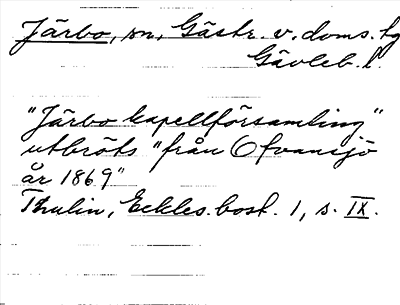 Järbo, sn, Gästr. v. doms. hg
Gävleb. l.
"Järbo kapellförsamling"
utbröts "från Ofvansjö
år 1869"
Thulin, Eckles. bost. 1, s. IX.